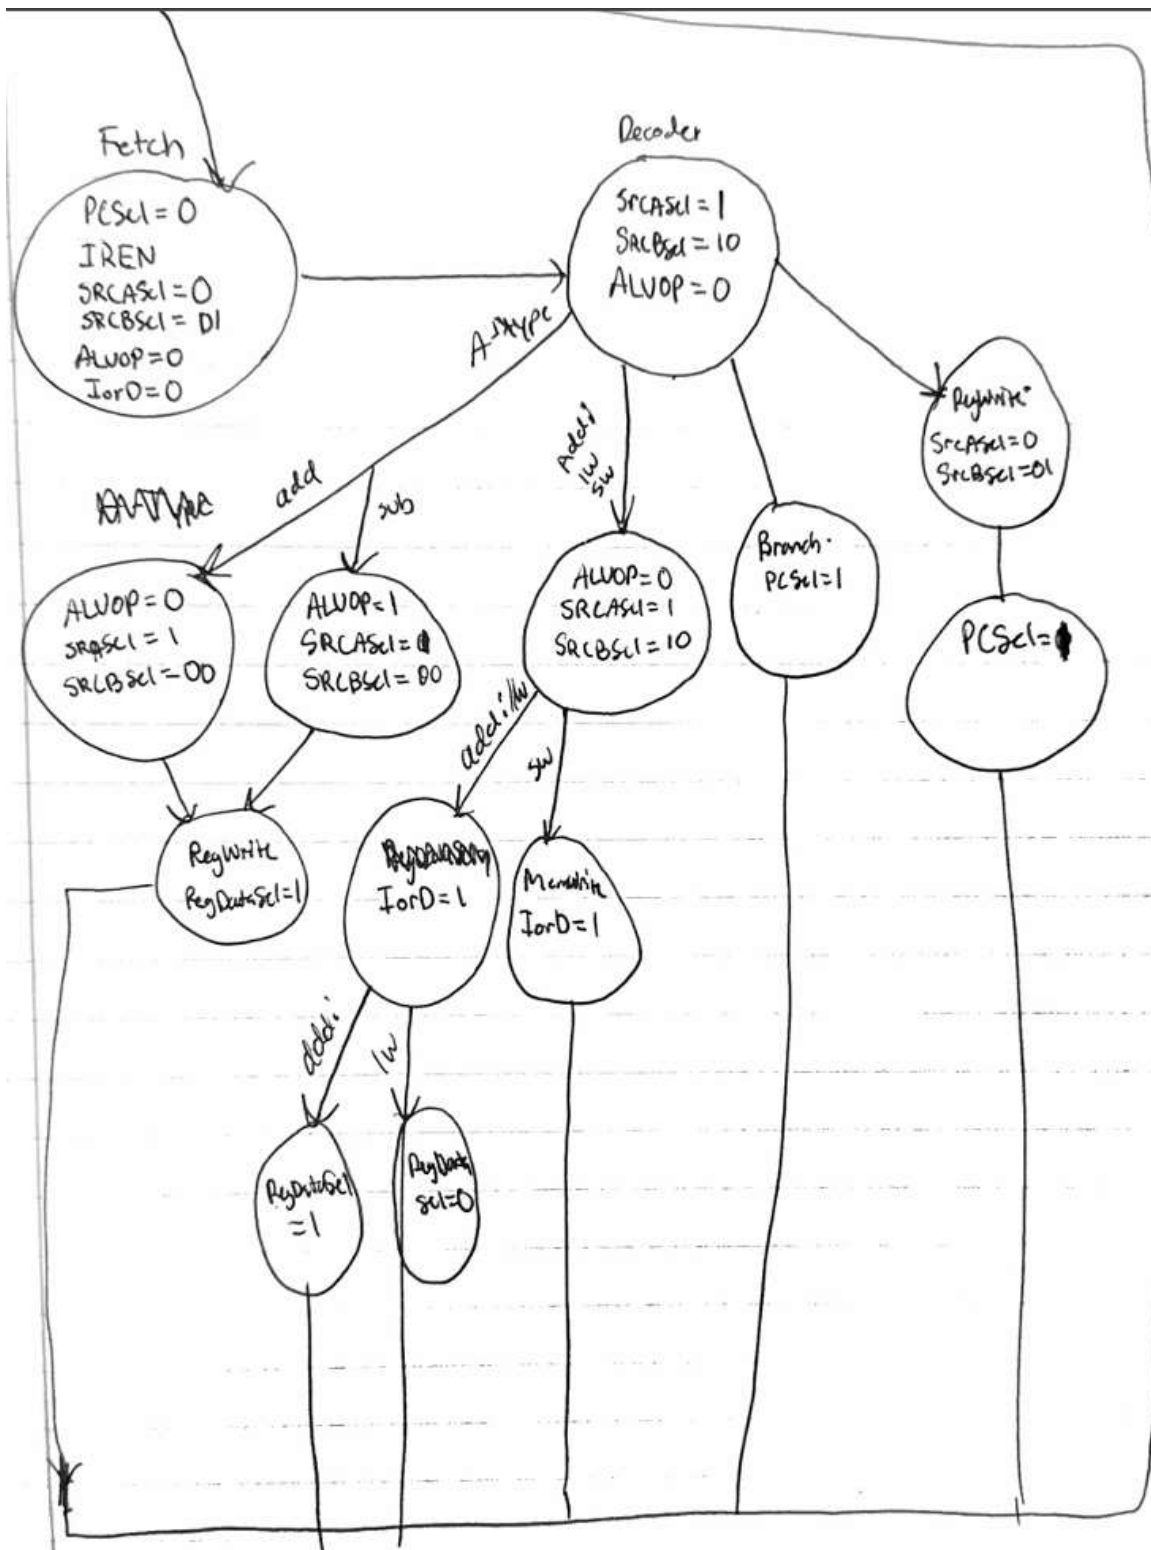 Fetch
PCSel = 0
IREN
SRCASel = 0
SRCBSel = 01
ALUOP = 0
IorD = 0
Decoder
SrcASel = 1
SRCBSel = 10
ALUOP = 0
add
sub
Addi
lw
sw
RegWrite
SrcASel = 0
SrcBSel = 01
ALUOP = 0
SRCBSel = 00
ALUOP = 1
SRCBSel = 00
ALUOP = 0
SRCASel = 1
SRCBSel = 10
Branch
PCSel = 1
PCSel =
addi/lw
sw
RegWrite
RegDataSel = 1
IorD = 1
MemWrite
IorD = 1
addi
lw
RegDataSel
= 1
RegData
Sel = 0